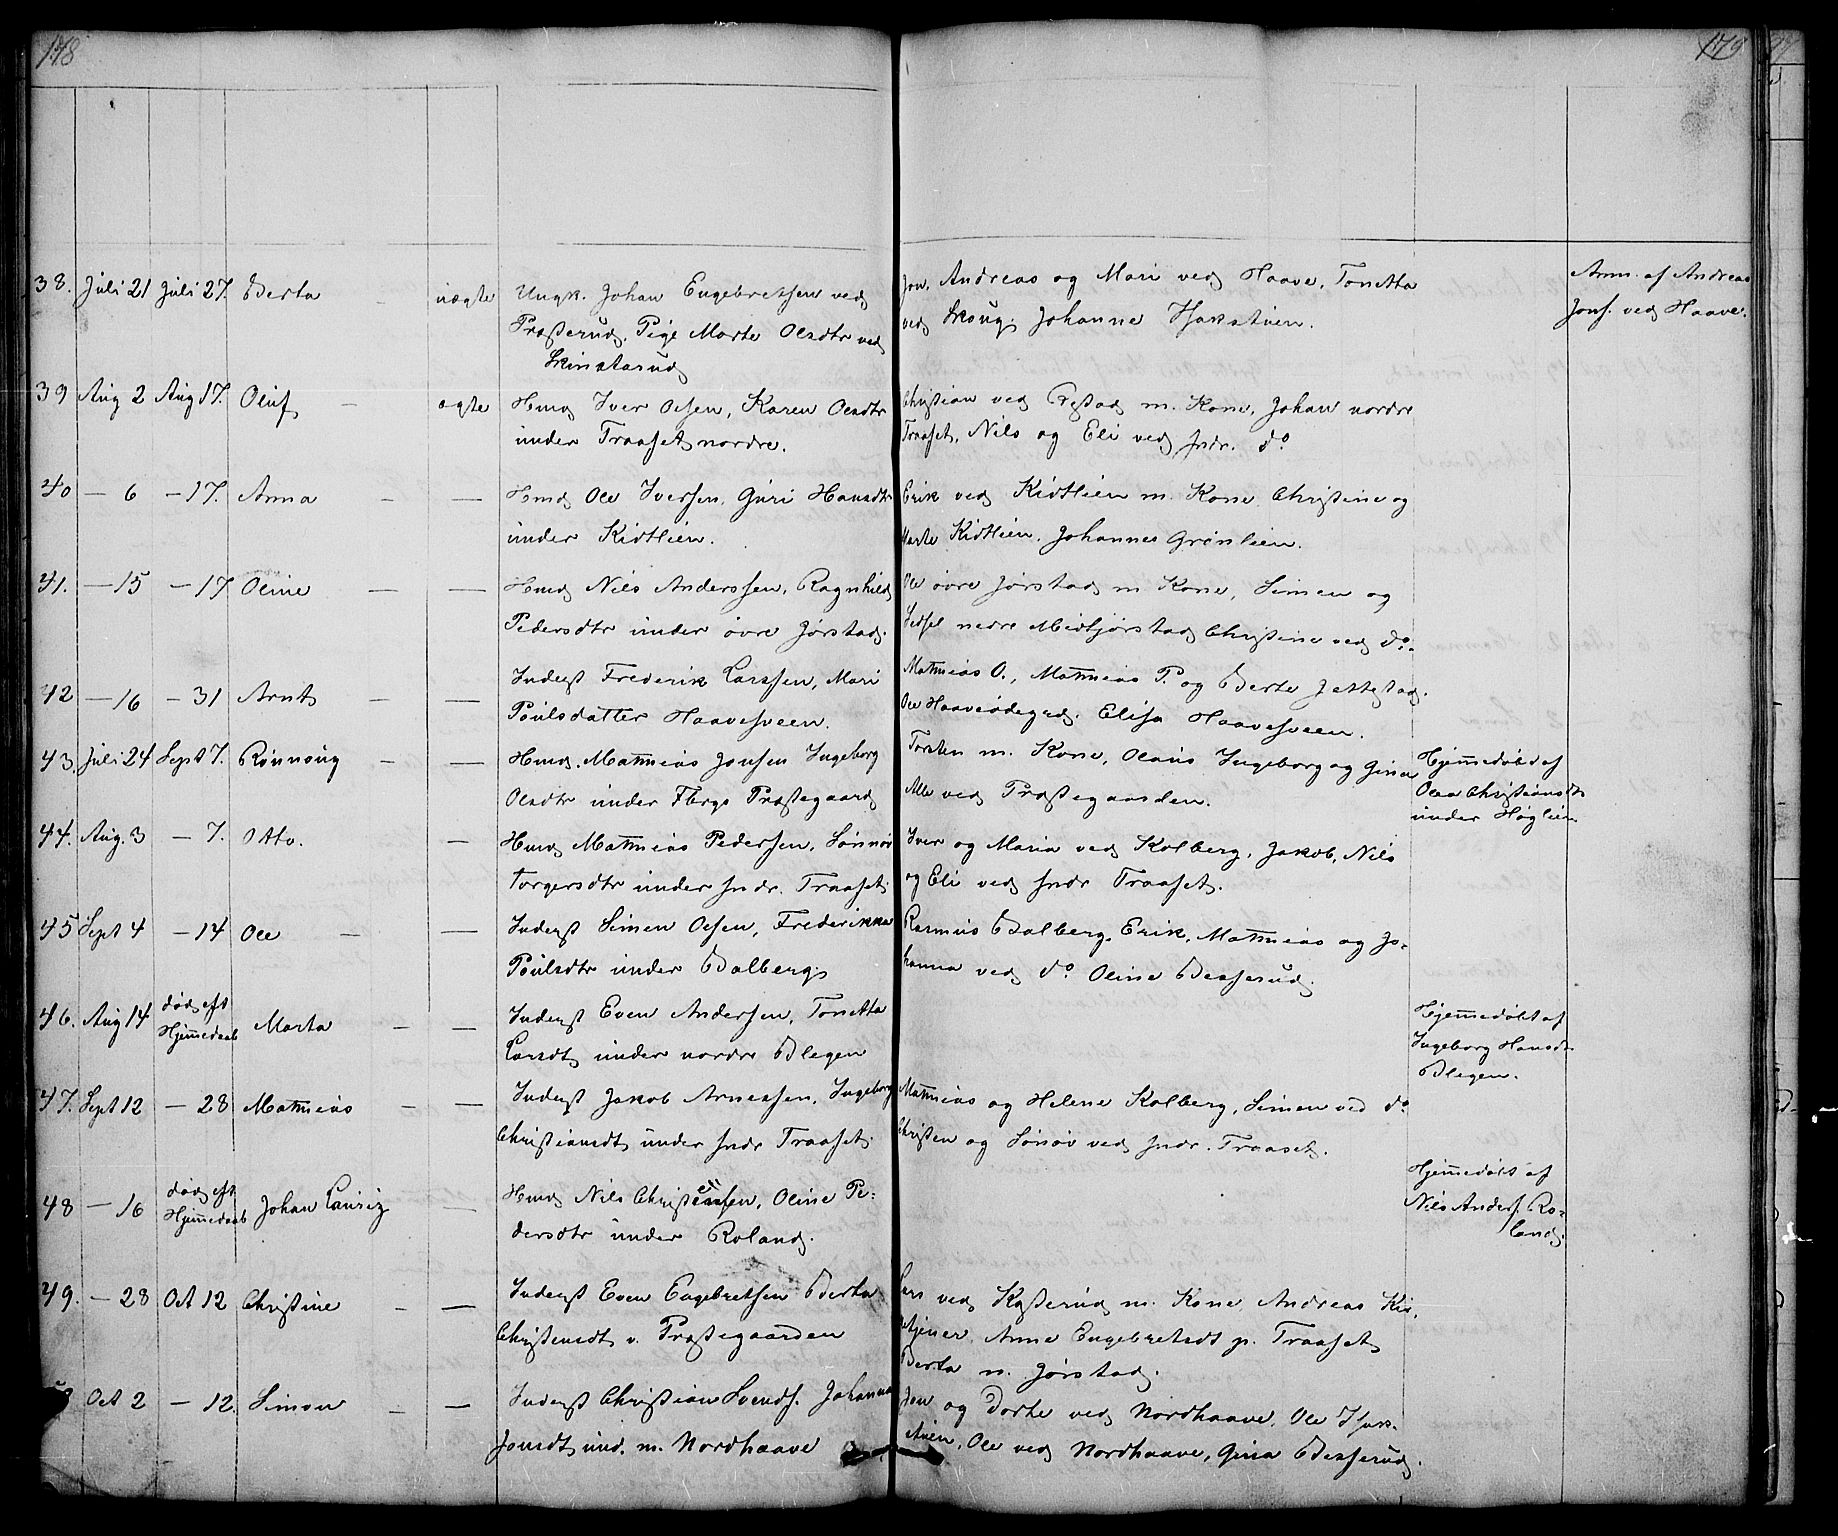 178
179
38. Juli 21 Juli 27. Berta - uægte Ungk. Johan Engebretsen ved
Præsterud, Pige Marte Olsdtr ved
Skinstarud
Jon, Andreas og Mari ved Haave, Tonetta
ved Skoug. Johanne
Anm. af Andreas
Jons. ved Haave.
39 Aug 2 Aug 17. Oluf - ægte Hmd Iver Olsen, Karen Olsdtr
under Traaset nordre.
Christian ved m. Kone, Johan nordre
Traaset, Nils og Eli ved sndr. do
40 - 6 - 17. Anna - - Hmd Ole Iversen, Guri Hansdtr
under Kidtlien.
Erik ved Kidtlien m. Kone Christine og
Marte Kidtlien. Johannes Grønlien.
41. - 15 - 17 Oline - - Hmd Nils Anderssen, Ragnhild
Pedersdtr under øvre Jørstad.
Ole øvre Jørstad m Kone, Simen og
Sidsel nedre Midtjørstad Christine ved do.
42 - 16 - 31 Arnt - - Inderst Frederik Larssen, Mari
Poulsdatter Haavesveen.
Mathias O., Mathias P. og Berte Jettestad.
Ole Haaveødegrd. Elisa Haavesveen.
43. Juli 24 Sept 7. Rønnoug - - Hmd. Mathias Jonsen Ingeborg
Olsdtr under Præstegaard
Torsten m. Kone, Olaus Ingeborg og Gina
Alle ved Præstegaarden.
Hjemedøbt af
Olea Christiansdt
under Høglien
44. Aug. 3 - 7. Otto. - Hmd Mathias Pedersen, Sønnøv
Torgersdtr under sndr. Traaset.
Iver og Maria ved Kolberg, Jakob, Nils
og Eli ved sndr Traaset.
45 Sept 4 - 14 Ole - - Inderst Simen Olsen, Frederikke
Poulsdtr under Balberg
Rasmus Balberg, Erik, Mathias og Jo-
hanna ved do Oline Besserud.
46. Aug 14 død eft
Hjemedaab Marta - - Inderst Even Andersen, Tonetta
Larsdt under nordre Blegen
Hjemedøbt af
Ingeborg Hansdr
Blegen.
47. Sept 12 - 28 Mathias - - Inderst Jakob Arnessen, Ingeborg
Christiansdt under sndr Traaset.
Mathias og Helene Kolberg, Simen ved do
Christen og Sønøv ved sndr. Traaset.
48 - 16 død eft
Hjemedaab Johan Lauriz - Hmd Nils Christensen, Oline Pe-
dersdtr under Roland.
Hjemedøbt af
Nils Anders. Ro-
land.
49. - 28 Oct 12 Christine - - Inderst Even Engebretsen Berta
Christensdt v. Præstegaarden
Lars ved m. Kone Andreas Kir-
ketjener. Anne Engebretsdt p. Traaset
Berta n. Jørstad.
Oct 2 - 12. Simon - - Inderst Christian Svends. Johanna
Jonsdt und. m. Nordhaave
Jon og Dorte ved Nordhaave, Ole
Ole ved Nordhaave, Gina Besserud.